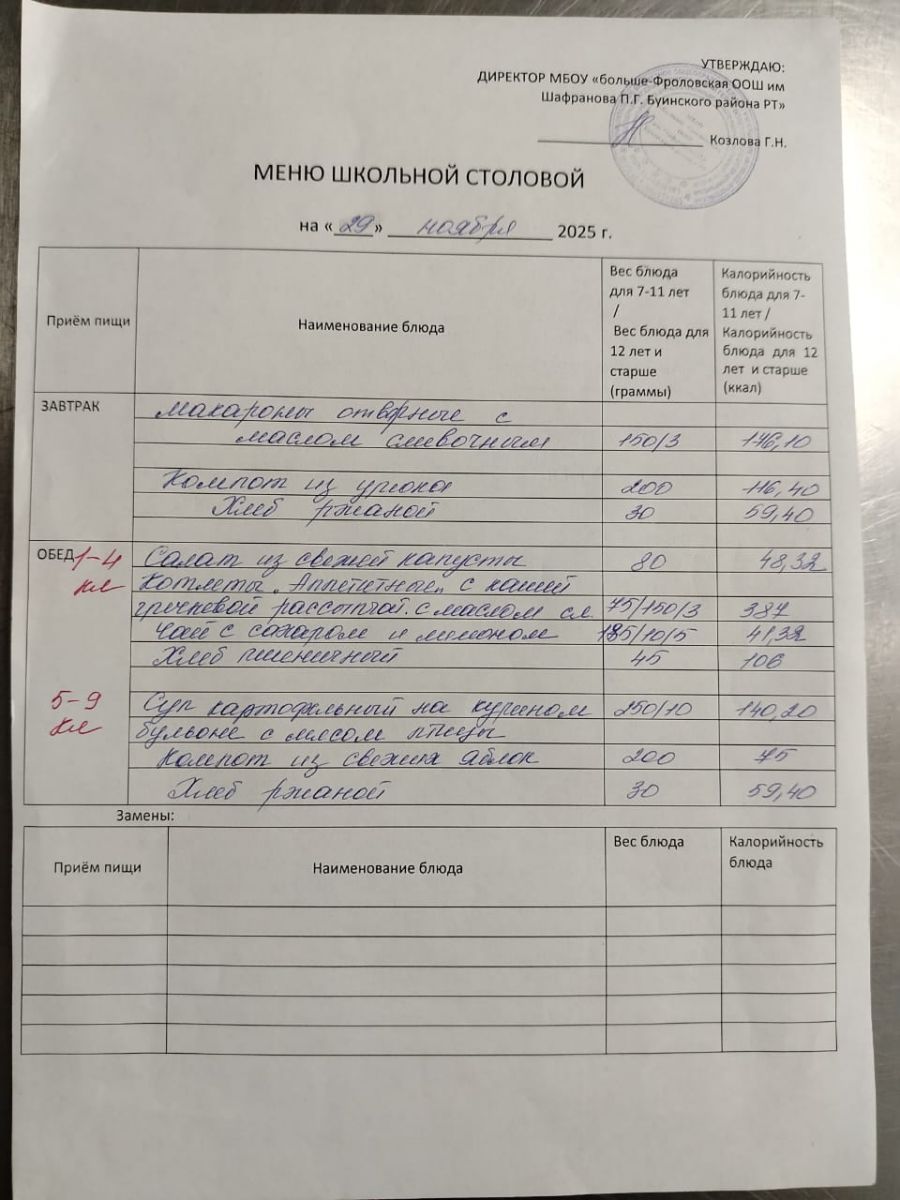 УТВЕРЖДАЮ:
ДИРЕКТОР МБОУ «больше-Фроловская ООШ им
Шафранова П.Г. Буинского района РТ»
Козлова Г.Н.
МЕНЮ ШКОЛЬНОЙ СТОЛОВОЙ
на « 29 » ноября 2025 г.
Приём пищи
Наименование блюда
Вес блюда
для 7-11 лет
/
Вес блюда для
12 лет и
старше
(граммы)
Калорийность
блюда для 7-
11 лет /
Калорийность
блюда для 12
лет и старше
(ккал)
ЗАВТРАК
Макароны отврные с
маслом сливочным 150/3
Компот из урюка 200 116,40
Хлеб ржаной 30 59,40
ОБЕД 1-4 кл
Салат из свежей капусты 80 48,32
Котлеты „Аппетитные" с кашей
гречневой рассыпчат. с маслом сл. 75/150/3 387
Чай с сахаром и лимоном 185/10/5 41,32
Хлеб пшеничный 45 106
5-9 кл
Суп картофельный на курином 250/10 140,20
бульоне с мясом птицы
Компот из свежих яблок 200 75
Хлеб ржаной 30 59,40
Замены:
Приём пищи
Наименование блюда
Вес блюда
Калорийность
блюда